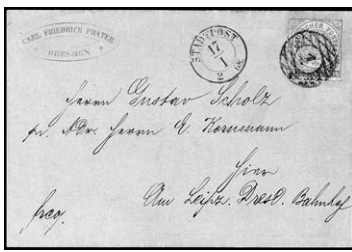 CARL FRIEDRICH PRATER
DRESDEN
STADTPOST
17
1
2
Herrn Gustav Scholz
pr. Adr. Herrn E. Kornmann
Hier
Am Leipz. Dresd. Bahnhof